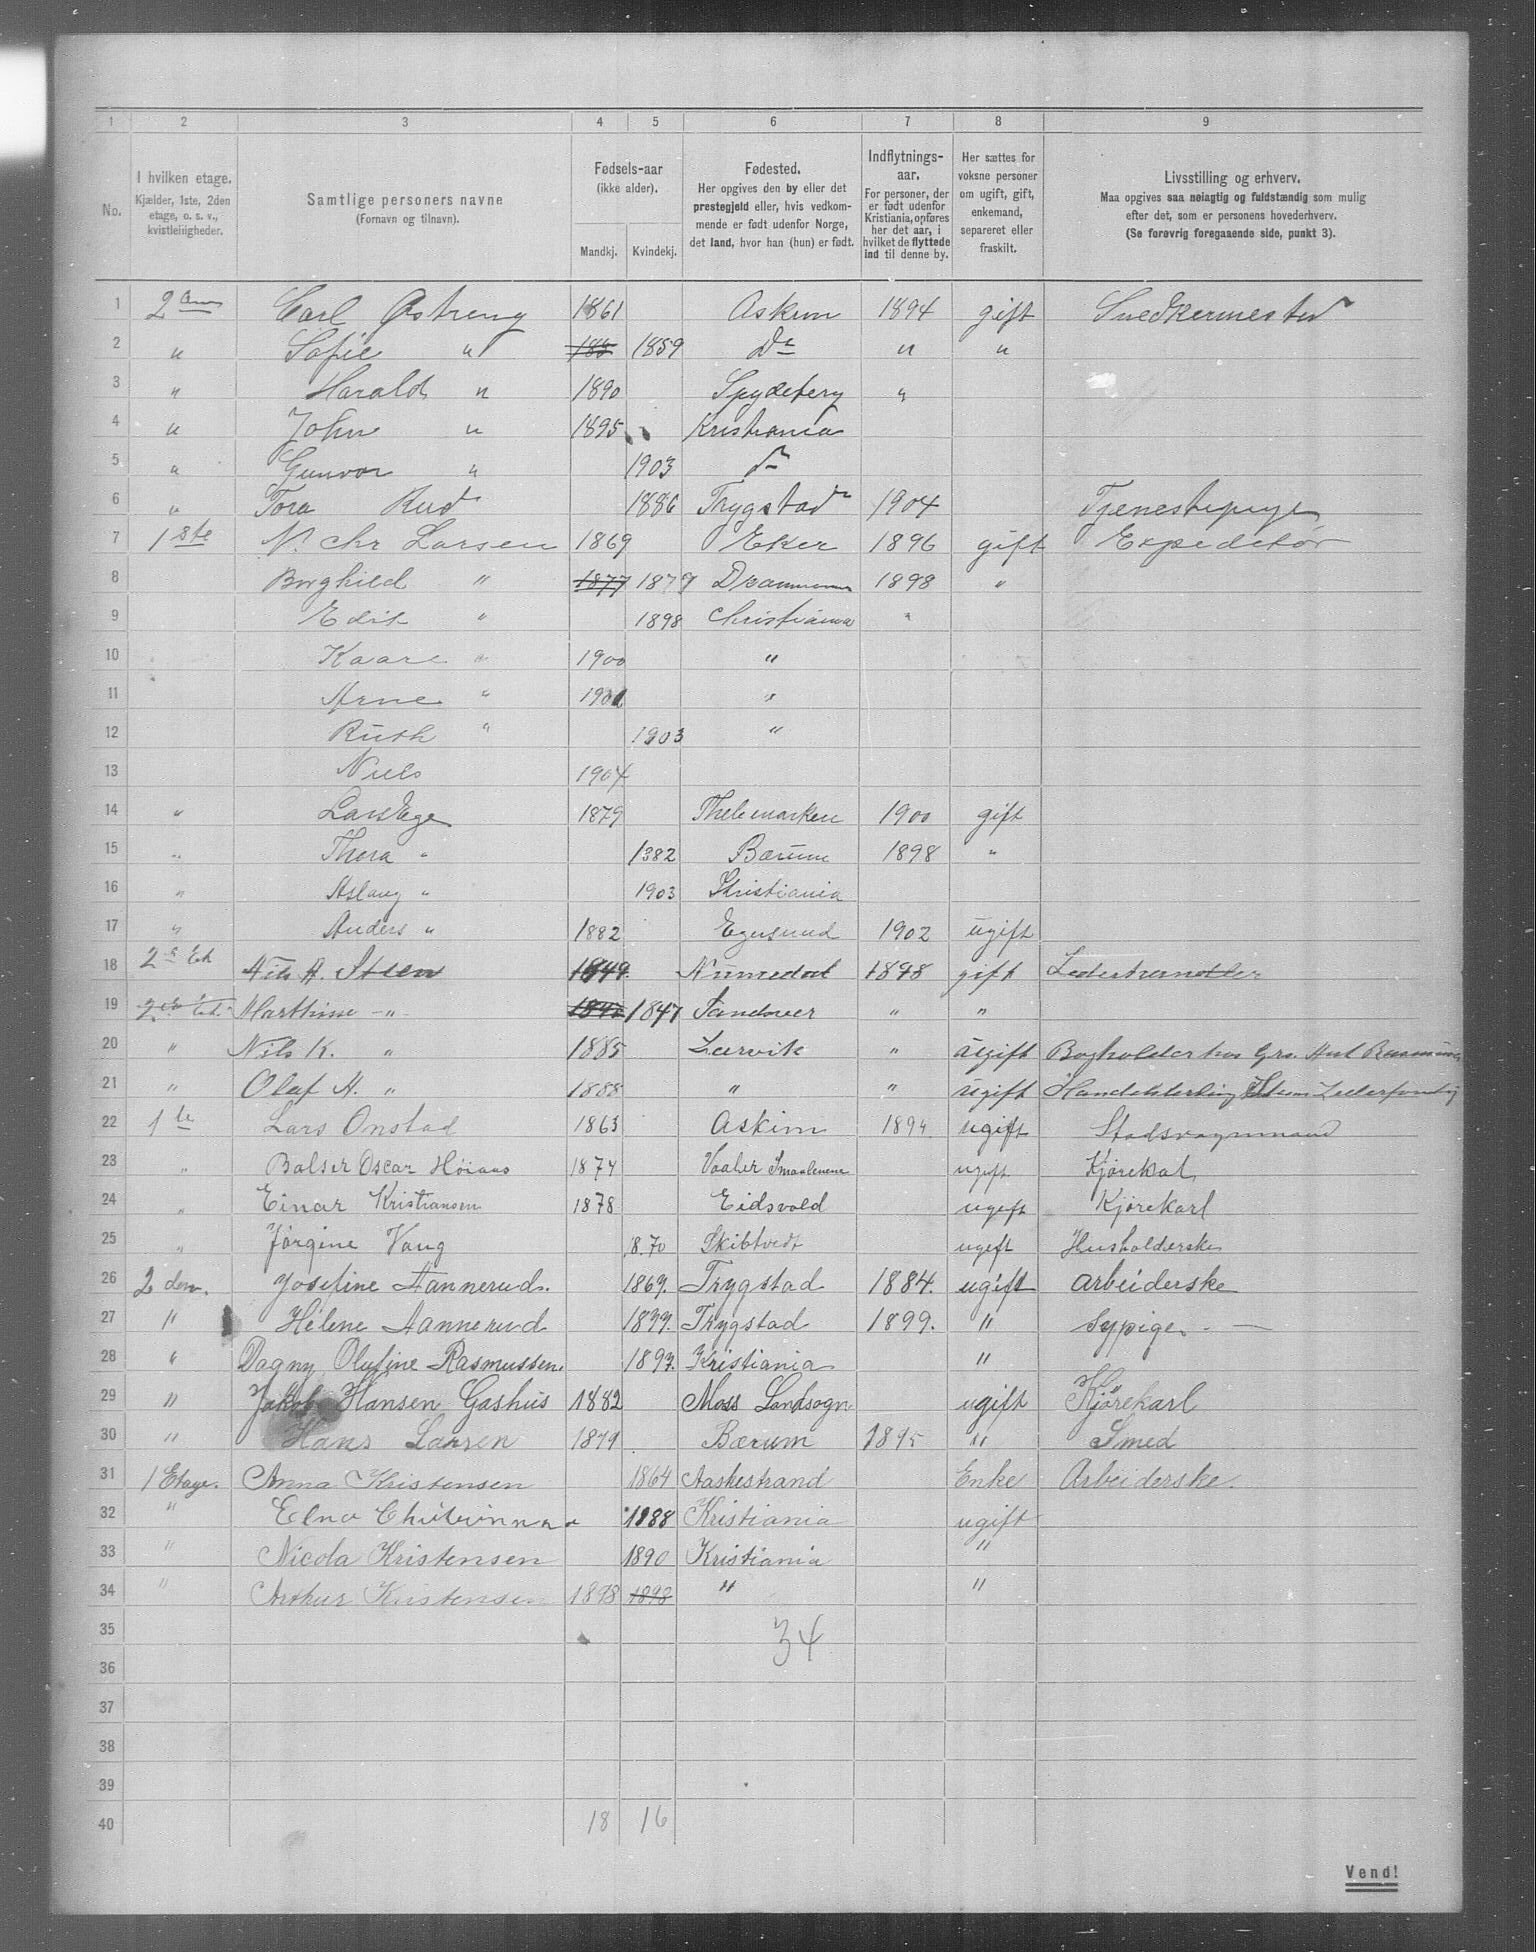 1 2 3 4 5 6 7 8 9
No.
I hvilken etage.
Kjælder, 1ste, 2den
etage, o. s. v.,
kvistleiligheder.
Samtlige personers navne
(Fornavn og tilnavn).
Fødsels-aar
(ikke alder).
Mandkj. Kvindekj.
Fødested.
Her opgives den by eller det
prestegjeld eller, hvis vedkom-
mende er født udenfor Norge,
det land, hvor han (hun) er født.
Indflytnings-
aar.
For personer, der
er født udenfor
Kristiania, opføres
her det aar, i
hvilket de flyttede
ind til denne by.
Her sættes for
voksne personer
om ugift, gift,
enkemand,
separeret eller
fraskilt.
Livsstilling og erhverv.
Maa opgives saa nøiagtig og fuldstændig som mulig
efter det, som er personens hovederhverv.
(Se forøvrig foregaaende side, punkt 3).
1 2 Carl Østreng 1861 Askim 1894 gift Snedkermester
2 " Sofie " 1859 Do " "
3 " Harald " 1890 Spydeberg "
4 " John " 1895 Kristiania
5 " Gunvor " 1903 do
6 " Tora Rud 1886 Trygstad 1904 Tjenestepige
7 1ste N. Chr Larsen 1869 Eker 1896 gift Expeditør
8 Borghild " 1877 1879 Drammen 1898 "
9 Edit " 1898 Christiania "
10 Kaare " 1900 "
11 Arne " 190 "
12 Ruth " 1903 "
13 Niels 1904
14 " Lars Ege 1879 Thelemarken 1900 gift
15 " Thora " 1882 Bærum 1898 "
16 " Aslaug " 1903 Kristiania
17 " Anders " 1882 Egersund 1902 ugift
18 2 Et Nils A. Steen 1849. Numedal 1898 gift
19 2 Et. Marthine -"- 1847 Sandsver " "
20 " Nils K. " 1885 Larvik " ugift Bogholder hos
21 " Olaf A. " 1888 " " ugift
22 1 te Lars Onstad 1863 Askim 1894 ugift Stadsvognmand
23 " Balser Oscar Høiaas 1874 Vaaler Smaalenene ugift Kjørekal
24 " Einar Kristiansen 1878 Eidsvold ugeft Kjørekarl
25 " Jørgine Vaug 8.70 Skibtvedt ugeft Husholderske
26 2 den. Josefine Sannerud. 1869. Trygstad 1884. ugift arbeiderske
27 " Helene Sannerud Trygstad 1899. " Sypige. —
28 " Dagny Olufine Rasmussen. 1897. Kristiania "
29 " Jakob Hansen Gashus 1882 Moss Landsogn ugift Kjørekarl
30 " Hans Larsen 1879 Bærum 1895 " Smed
31 1 Etage. Anna Kristensen 1864 Aaskestrand Enke Arbeiderske.
32 " Elna 1888 Kristiania ugift
33 " Nicola Kristensen 1890 Kristiania "
34 " Arthur Kristensen 1898 1898 " "
35 34
36
37
38
39
40 18 16
Vend!